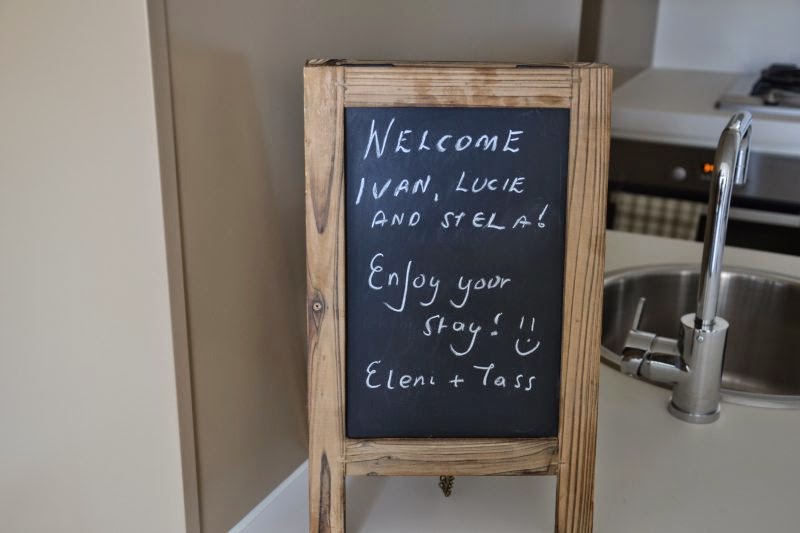 WELCOME
IVAN, LUCIE
AND STELA!
Enjoy your
stay! :)
Eleni + Tass